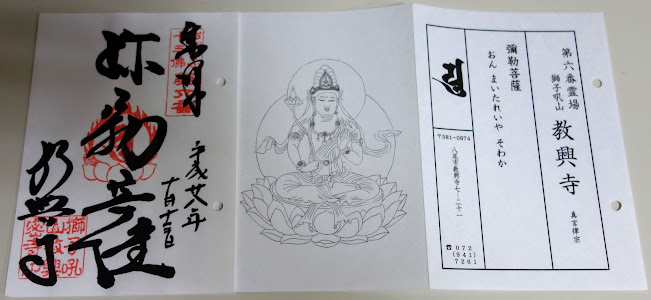 第六番霊場
獅子吼山 教興寺
真言律宗
彌勒菩薩
おん まいたれいや そわか
〒581-0874
八尾市教興寺七ー二十一
☎072
(941)
7261
奉拝
平成廿八年
弥勒菩薩
教興寺
獅子吼
山教興
密寺印